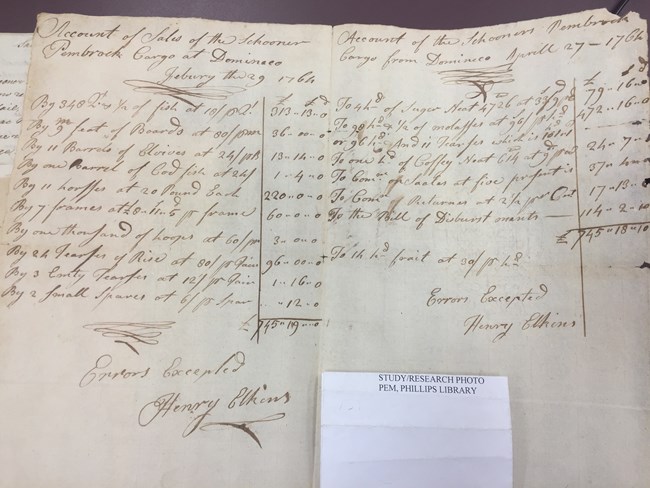 Account of Sales of the Schooner
Pembrock Cargo at Domineco
Febury the 29 1764
£ S d
By 348 Qts 1/2 of fish at 18/ pr Qt 313-13-0
By 9 m feet of Boards at 80/ pr m 36-00-0
By 11 Barrels of Elwives at 24/ pr B 13-4-0
By one Barrel of Cod fish at 24/ 1-4-0
By 11 horsses at 20 Pound Each 220-0-0
By 7 frames at £8-11-5 pr frame 60-0-0
By one thousand of hoops at 60/ pr 3-0-0
By 24 Tearses of Rise at 80/ pr 96-00-0
By 3 Emty Tearses at 12/ pr 1-16-0
By 2 Small Spares at 6/ pr Spar -12-0
£ 745-19-0
Errors Excepted
Henry Elkins
Account of the Schooners Pembrock
Cargo from Domineco Aprill 27-1764
£ S d
To 4 hd of Suger Neat 4726 at 79-16-0
To 98 hd 1/2 of molasses at 96/ pr hd 472-16-0
or 96 hd And 11 Tearses which is
To one hd of Coffey Neat 614 at 9d 24-7-
To Comn of Saales at five pr sent is 37-4-
To Comn of Returnes at 2 1/2 pr Cent 17-13-0
To the Bill of Disburstments 114-2-10
£ 745-18-10
To 14 hd frait at 30/ pr hd
Errors Excepted
Henry Elkins
STUDY/RESEARCH PHOTO
PEM, PHILLIPS LIBRARY